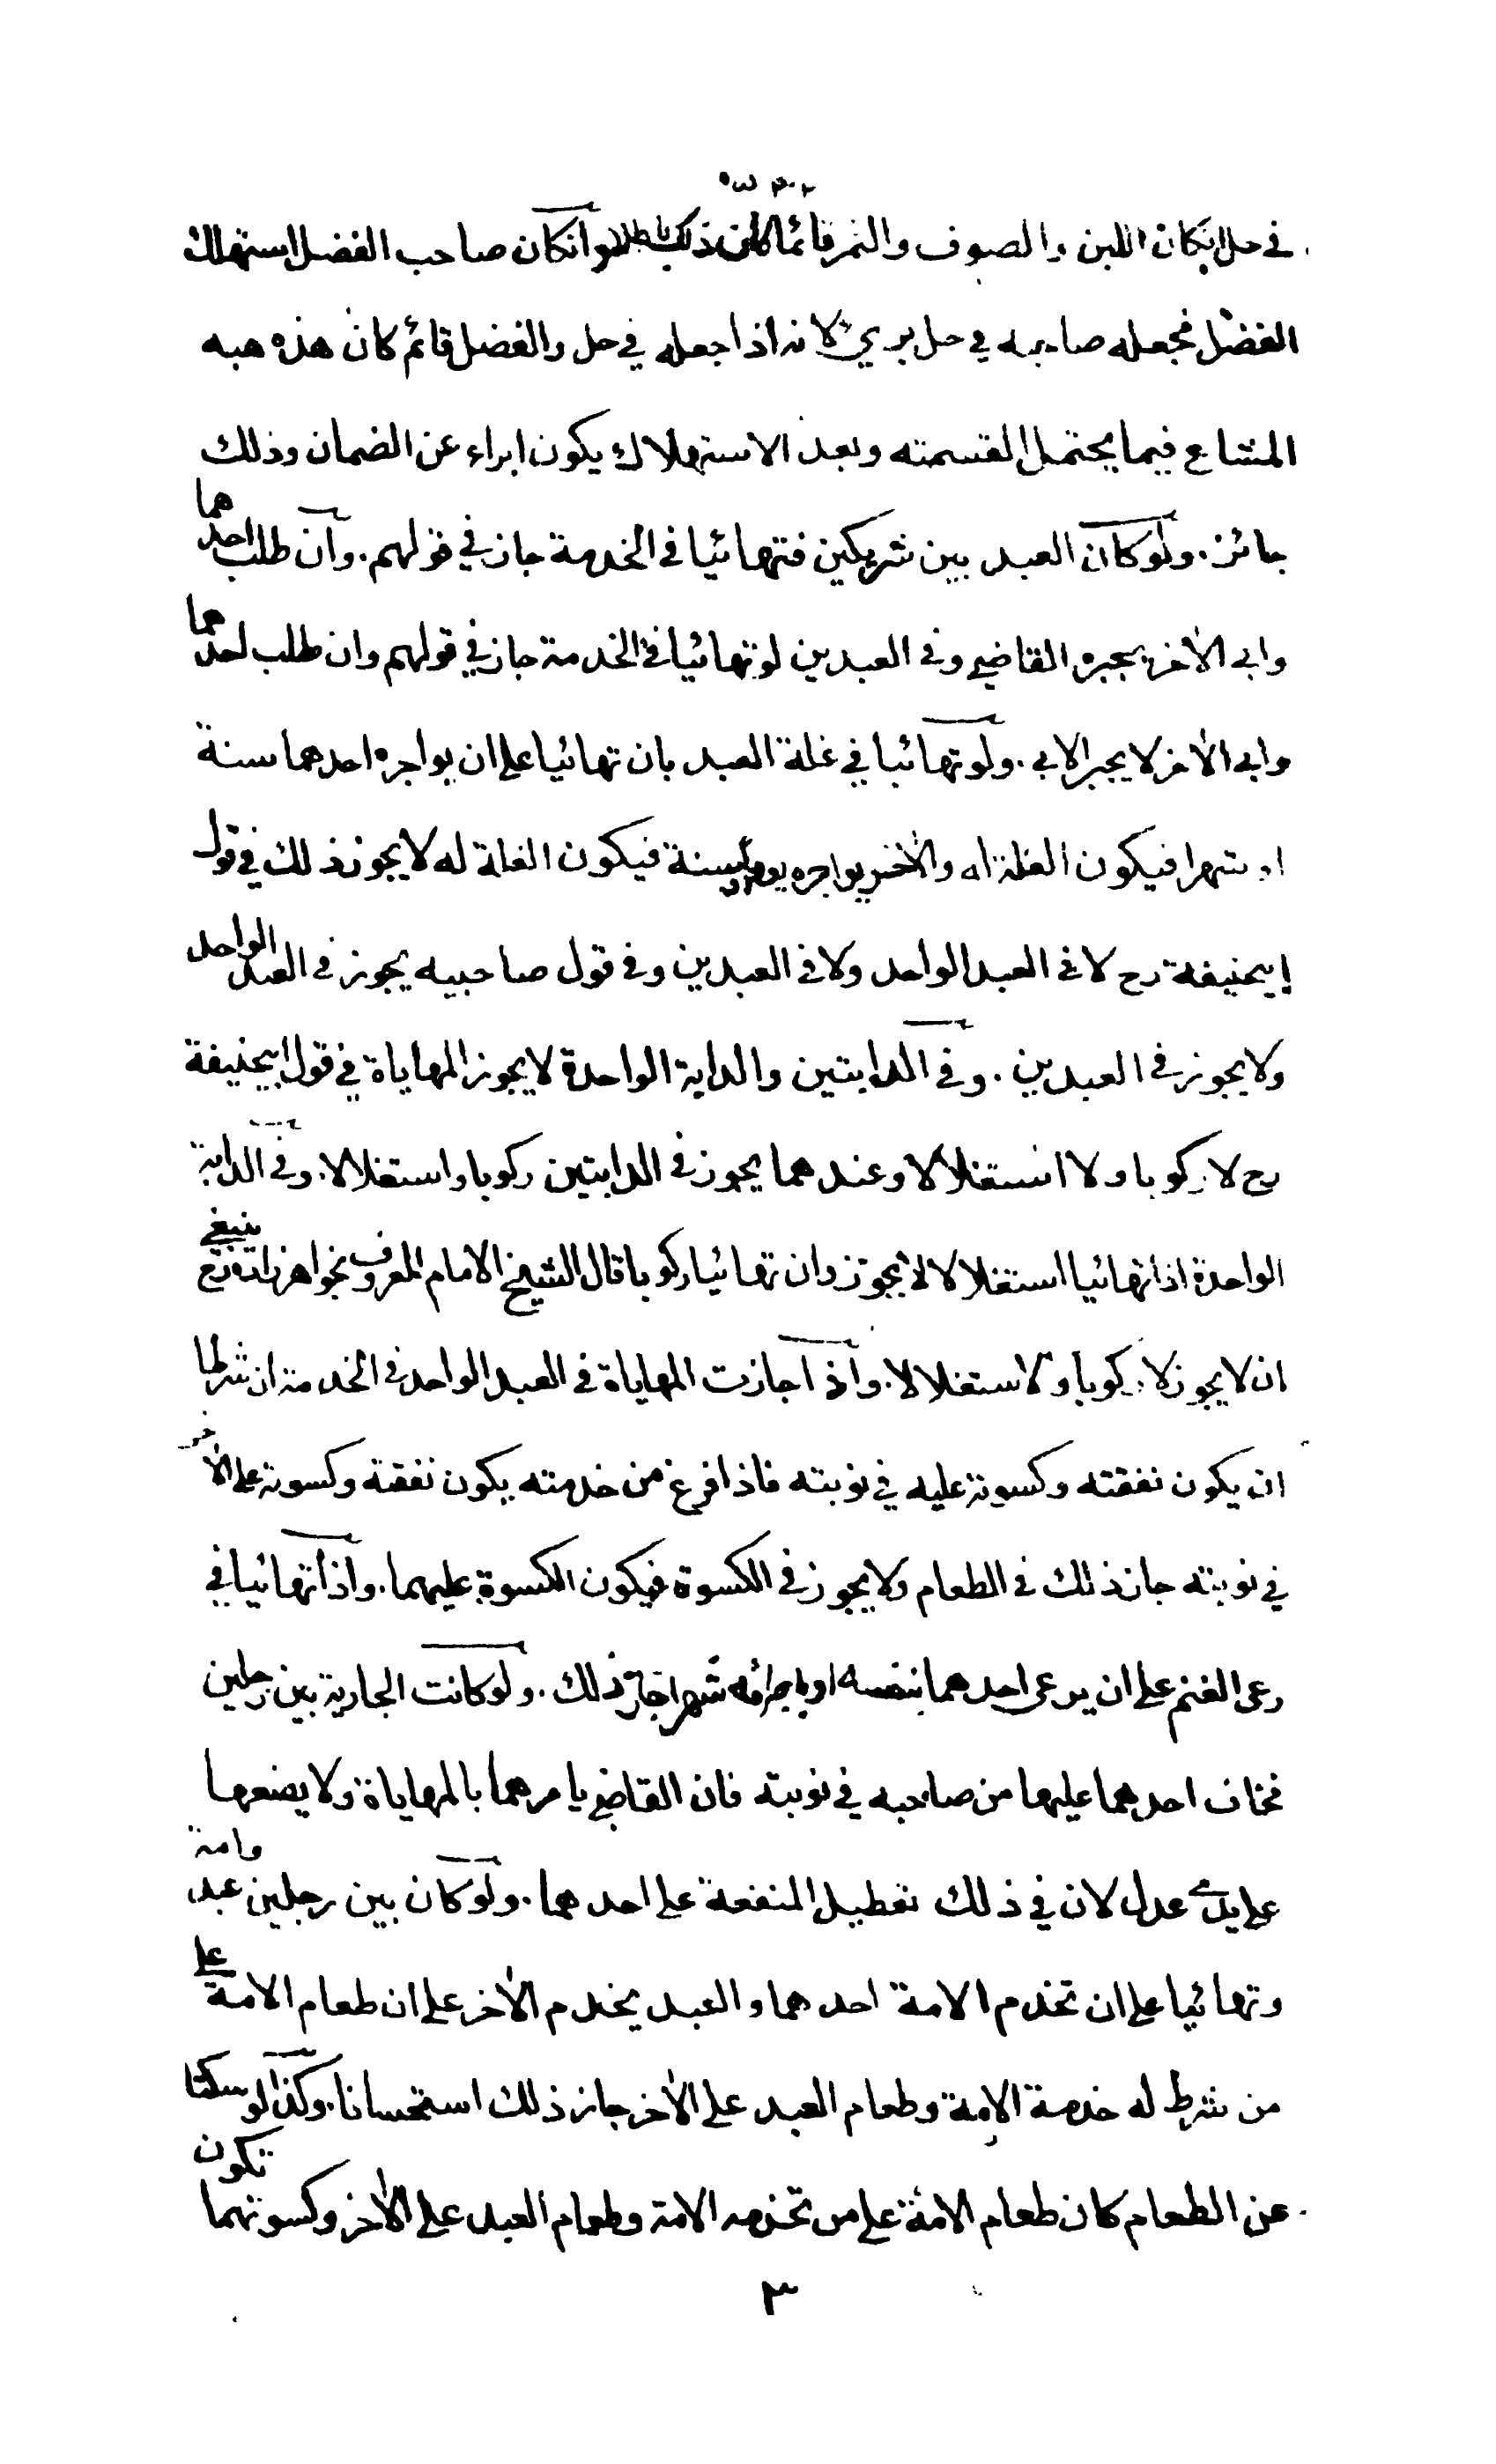 في حل ان كان اللبن والصوف والثمر قائما كان ذلك باطلا وانكان صاحب الفضل استهلك
الفضل فجعله صاحبه في حل بريئ لانه اذا جعله في حل والفضل قائم كان هذه هبه
المشاع فيما يحتمل القسمته وبعد الاستهلاك يكون ابراء عن الضمان وذلك
جائز. ولو كان العبد بين شريكين فتهائيا في الخدمة جاز في قولهم. وان طلب احدهما
وابى الآخر يجبره القاضي وفي العبدين لو تهائيا في الخدمة جاز في قولهم وان طلب احدهما
وابى الآخر لا يجبر الابي. ولو تهائيا في غلة العبد بان تهائيا على ان يواجره احدهما سنة
او شهرا فيكون الغلة له والآخر يواجره سنة فيكون الغلة له لا يجوز ذلك في قول
ابيحنيفة رح لا في العبد الواحد ولا في العبدين وفي قول صاحبيه يجوز في العبد الواحد
ولا يجوز في العبدين. وفي الدابتين والدابة الواحدة لا يجوز المهاياة في قول ابيحنيفة
رح لا ركوبا ولا استغلالا وعندهما يجوز في الدابتين ركوبا واستغلالا. وفي الدابة
الواحدة اذا تهائيا استغلالا لا يجوز وان تهائيا ركوبا قال الشيخ الامام المعروف بخواهرزاده رح ينبغي
ان لا يجوز لا ركوبا ولا استغلالا. واذا جازت المهاياة في العبد الواحد في الخدمة ان شرطا
ان يكون نفقته وكسوته عليه في نوبته فاذا فرغ من خدمته يكون نفقته وكسوته على الآخر
في نوبته جاز ذلك في الطعام ولا يجوز في الكسوة فيكون الكسوة عليهما. واذا تهائيا في
رعي الغنم على ان يرعى احدهما بنفسه او باجرائه شهرا جاز ذلك. ولو كانت الجارية بين رجلين
فخاف احدهما عليها من صاحبه في نوبته فان القاضي يامرهما بالمهاياة ولا يضعها
على يدي عدل لان في ذلك تعطيل المنفعة على احدهما. ولو كان بين رجلين عبد وامة
وتهائيا على ان تخدم الامة احدهما والعبد يخدم الآخر على ان طعام الامة على
من شرط له خدمة الامة وطعام العبد على الآخر جاز ذلك استحسانا. وكذا لو سكتا
عن الطعام كان طعام الامة على من تخدمه الامة وطعام العبد على الآخر وكسوتهما تكون
٣